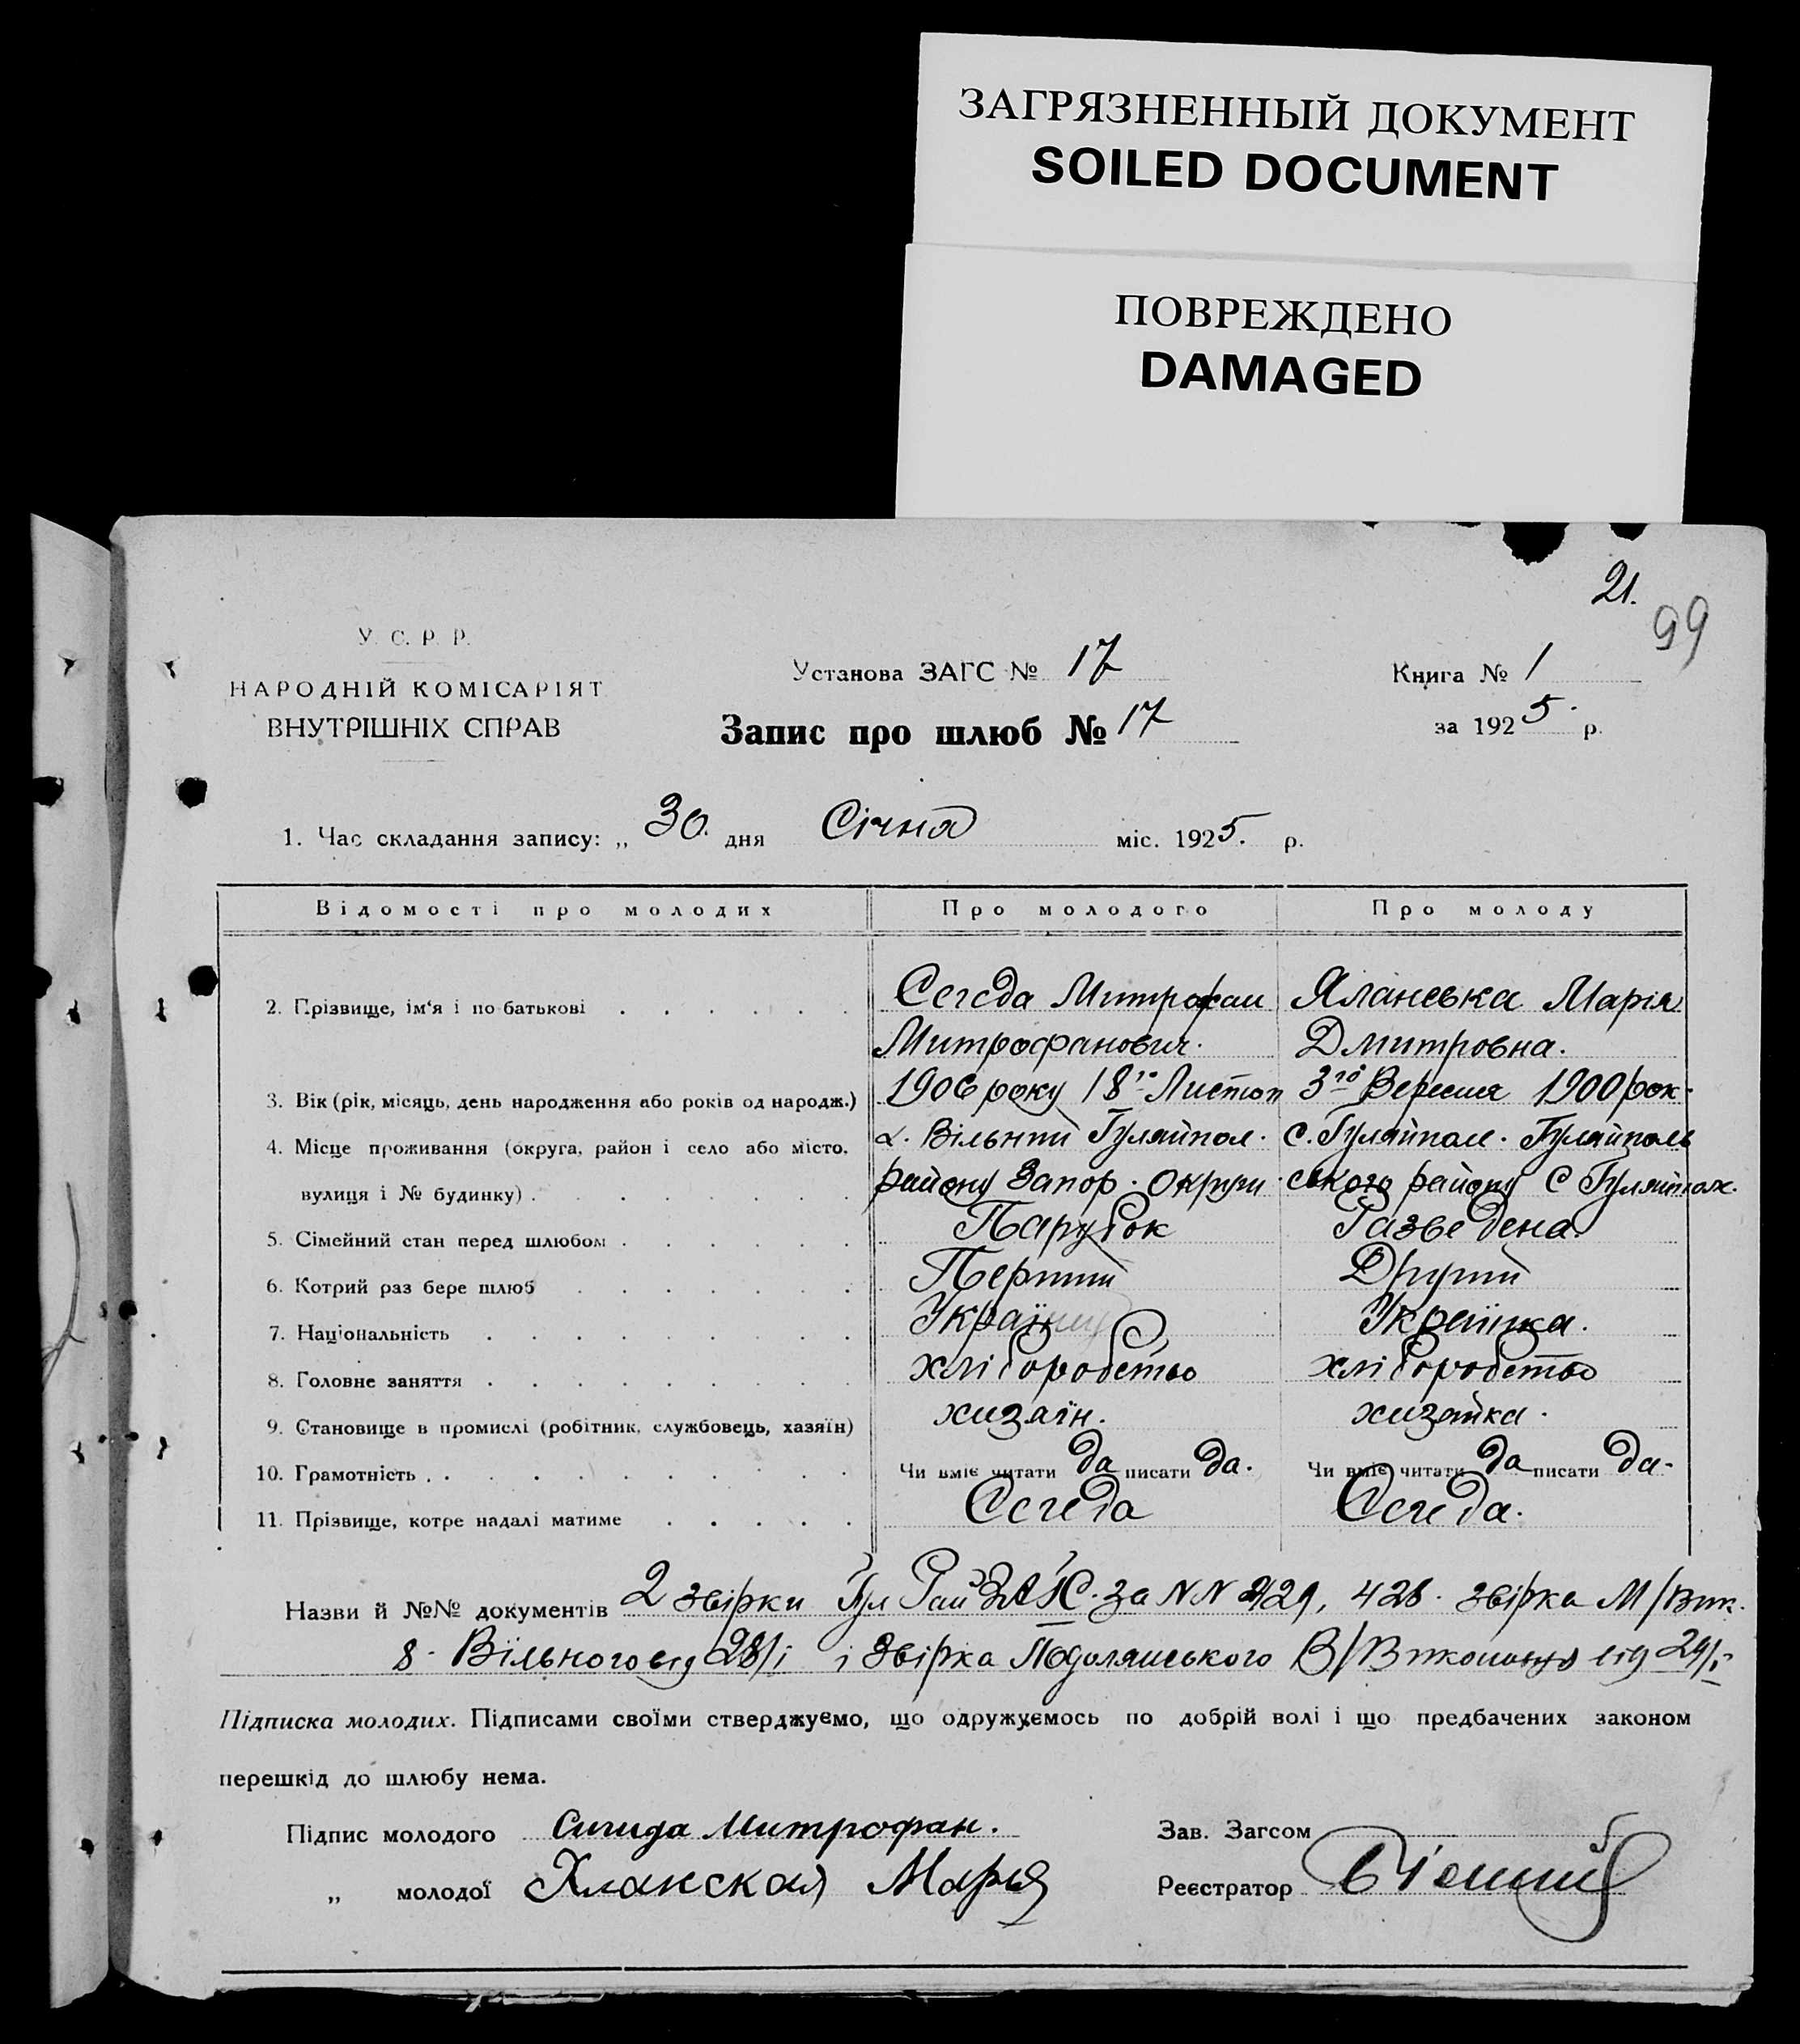 ЗАГРЯЗНЕННЫЙ ДОКУМЕНТ
SOILED DOCUMENT
ПОВРЕЖДЕНО
DAMAGED
21.
99
У. С. Р. Р.
НАРОДНІЙ КОМІСАРІЯТ
ВНУТРІШНІХ СПРАВ
Установа ЗАГС № 17
Запис про шлюб № 17
Книга № 1
за 1925 р.
1. Час складання запису: „ 30 дня Січня міс. 1925. р.
Відомості про молодих Про молодого Про молоду
2. Прізвище, ім'я і по-батькові Сегеда Митрофан Яланська Марія
Митрофанович. Дмитровна.
3. Вік (рік, місяць, день народження або років од народж.) 1906 року 18го Листоп 3го Вересня 1900 рок.
4. Місце проживання (округа, район і село або місто, х. Вільний Гуляйпол. с. Гуляйполе. Гуляйполь
вулиця і № будинку) району Запор. Округи ського району С Гуляйпол.
5. Сімейний стан перед шлюбом Парубок Разведена
6. Котрий раз бере шлюб Перший Другий
7. Національність Українець Українка.
8. Головне заняття хліборобство хліборобство
9. Становище в промислі (робітник, службовець, хазяїн) хизаїн. хизайка.
10. Грамотність Чи вміє читати да писати да. Чи вміє читати да писати да.
11. Прізвище, котре надалі матиме Сегеда Сегеда.
Назви й №№ документів 2 звірки Гул Рай ЗАГС. за NN 429, 428. звірка М/Вик.
Вільного від 28/I і звірка Подолянського В/Виконкому від 29/I
Підписка молодих. Підписами своїми стверджуємо, що одружуємось по добрій волі і що предбачених законом
перешкід до шлюбу нема.
Підпис молодого Сигида Митрофан.
Зав. Загсом
„ молодої Яланская Марья
Реєстратор